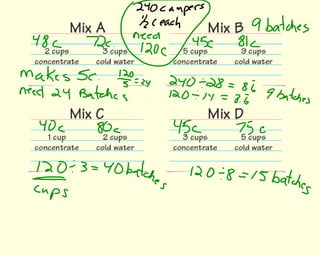 240 campers
1/2 c each
need
120c
Mix A
48c 72c
2 cups 3 cups
concentrate cold water
makes 5c. 120/5 = 24
need 24 Batches
Mix B 9 batches
45c 81c
5 cups 9 cups
concentrate cold water
240÷28 = 8.6
120÷14 = 8.6 9 batches
Mix C
40c 80c
1 cup 2 cups
concentrate cold water
120÷3 = 40 batches
cups
Mix D
45c 75c
3 cups 5 cups
concentrate cold water
120÷8 = 15 batches